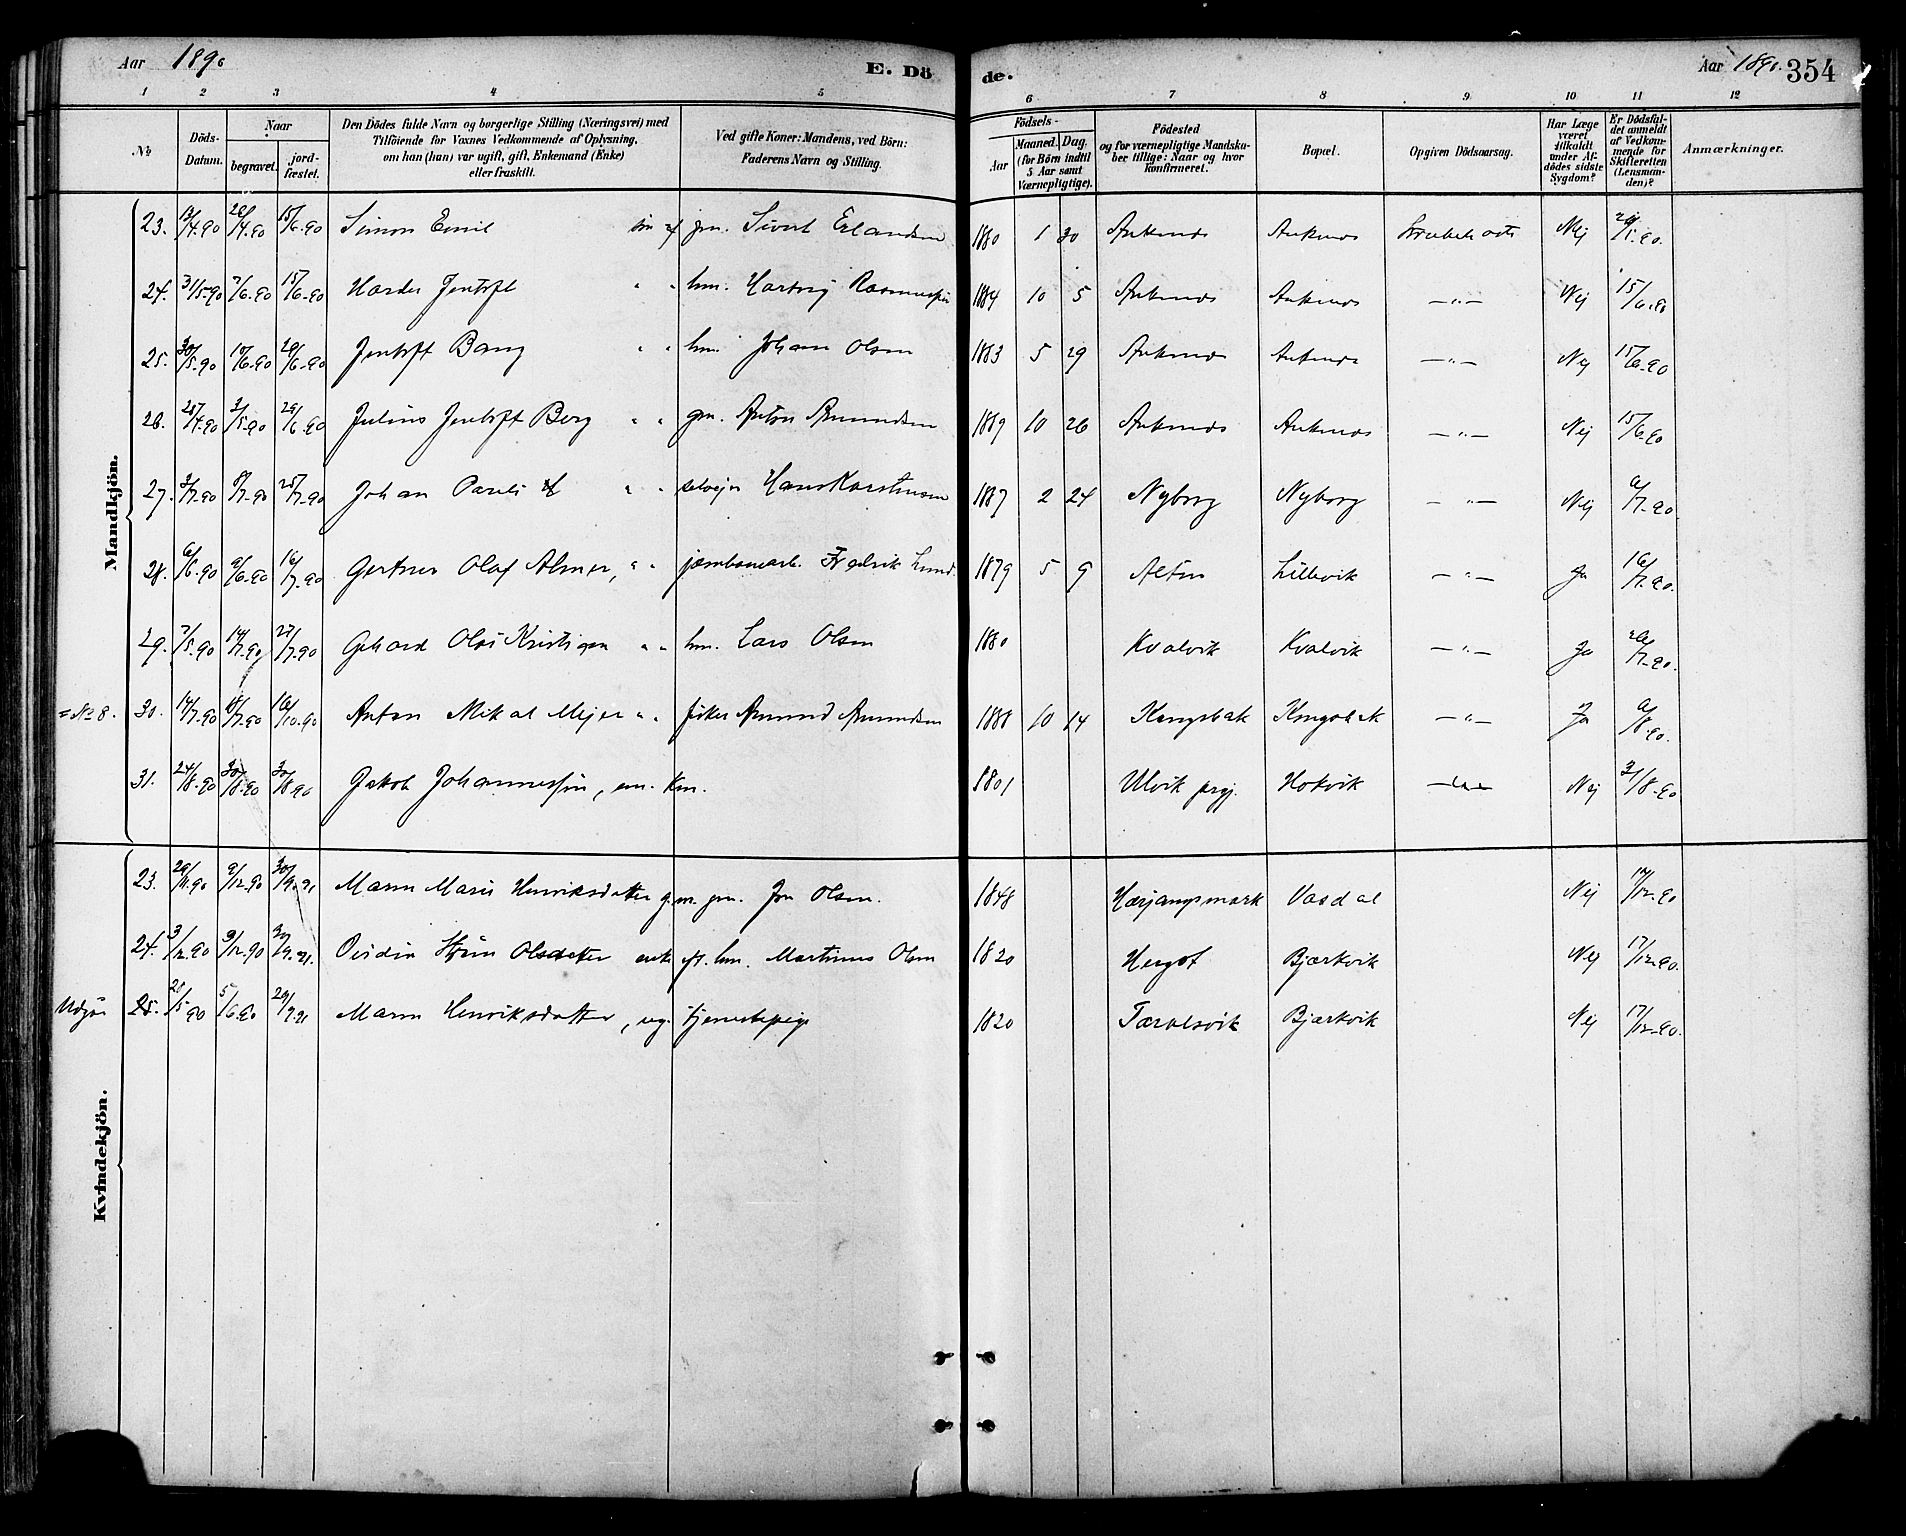 Aar 1890
E. Dö
de.
Aar 1890.
354
1 2 3 4 5 6 7 8 9 10 11 12
No
Döds-Datum.
Naar
begravet.
jord-fæstet.
Den Dödes fulde Navn og borgerlige Stilling (Næringsvei) med
Tilföiende for Voxnes Vedkommende af Oplysning,
om han (hun) var ugift, gift, Enkemand (Enke)
eller fraskilt.
Ved gifte Koner: Mandens, ved Börn:
Faderens Navn og Stilling.
Födsels-
Aar
Maaned. Dag.
(for Börn indtil
5 Aar samt
Værnepligtige).
Födested
og for værnepligtige Mandska-
ber tillige: Naar og hvor
konfirmeret.
Bopæl.
Opgiven Dödsaarsag.
Har Læge
været
tilkaldt
under Af-
dödes sidste
Sygdom?
Er Dödsfal-
det anmeldt
af Vedkom-
mende for
Skifteretten
(Lensman-
den)?
Anmærkninger.
Mandkjön.
23. 13/4.90 26/4.90 15/6.90 Simon Emil sön af gm. Sivert Erlandsen 1880 1 30 Ankenes Ankenes Nej
24. 31/5.90 7/6.90 15/6.90 Harder Jentoft " " hm. Hartvig Rasmussen 1884 10 5 Ankenes Ankenes —"— Nej 15/6.90
25. 30/5.90 10/6.90 29/6.90 Jentoft Bang " " hm. Johan Olsen 1883 5 29 Ankenes Ankenes —"— Nej 15/6.90
26. 28/4.90 2/5.90 29/6.90 Julius Jentoft Berg " " gm. Anton Amundsen 1889 10 26 Ankenes Ankenes —"— Nej 15/6.90
27. 3/7.90 25/7.90 Johan Pareli " " selvejer Hans Karstensen 1887 2 24 Nyborg Nyborg —"— Nej 9/7.90
28. 6/6.90 9/6.90 16/7.90 Gertner Olaf Almer, " " jernbanearb. Fredrik Lund. 1879 5 9 Alten Lillevik —"— Ja 16/7.90.
29. 7/5.90 14/7.90 27/7.90 Gehard Olai Kristian " " hm. Lars Olsen 1880 Kvalvik Kvalvik —"— Ja
= No 8. 30. 14/7.90 18/7.90 16/10.90 Anton Mikal Mejer " " fisker Amund Amundsen 1888 10 14 Kongsbak Kongsbak —"— Ja 9/8.90.
31. 24/8.90 30/8.90 30/8.90 Jakob Johannessen, em. Km. 1801 Ulvik prgj. Hokvik —"— Nej 31/8.90
Kvindekjön.
23. 29/11.90 9/12.90 30/9.91 Maren Marie Henriksdatter g.m. gm. Jon Olsen. 1848 Hærjangsmark Vasdal Nej 17/12.90
24. 3/12.90 9/12.90 30/9.91. Olsdatter enke ef. hm. Martinus Olsen 1820 Hergot Bjærkvik Nej 17/12.90.
Udgår 25. 28/5.90 5/6.90 29/9.91 Maren Henriksdatter, ug. tjenestepige 1820 Taralsvik Bjærkvik Nej 17/12.90.